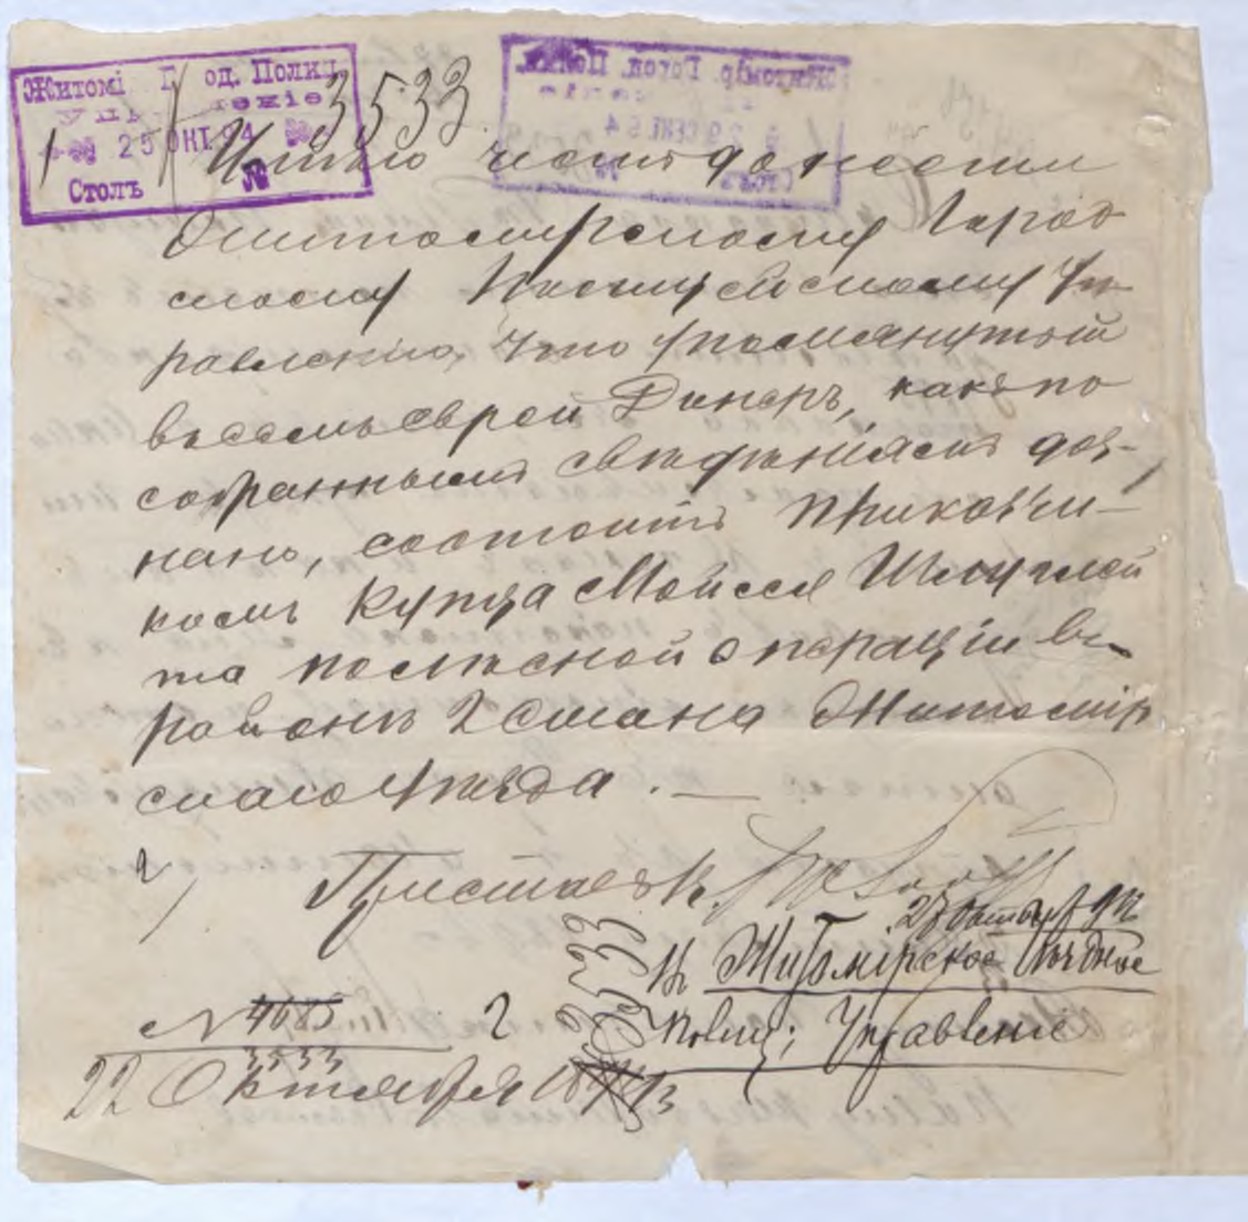 Житомі Г од. Полиц.
Управленіе
25 ОКТ. 94
Столъ №
3533
Имѣю честь донести
Житомирскому Город
скому Полицейскому Уп
равленію, что упомянутый
въ семъ еврей Динеръ, какъ по
собраннымъ свѣдѣніямъ доз-
нано, состоитъ прикащи-
комъ купца Мойсея Шмулей
та по лѣсной операціи въ
районѣ 2 стана Житомір
скаго уѣзда.
Приставъ
27 Октября 94
Въ Житомірское Уѣздное
Полиц; Управленіе
3533
№ 4685
3533
22 Октября